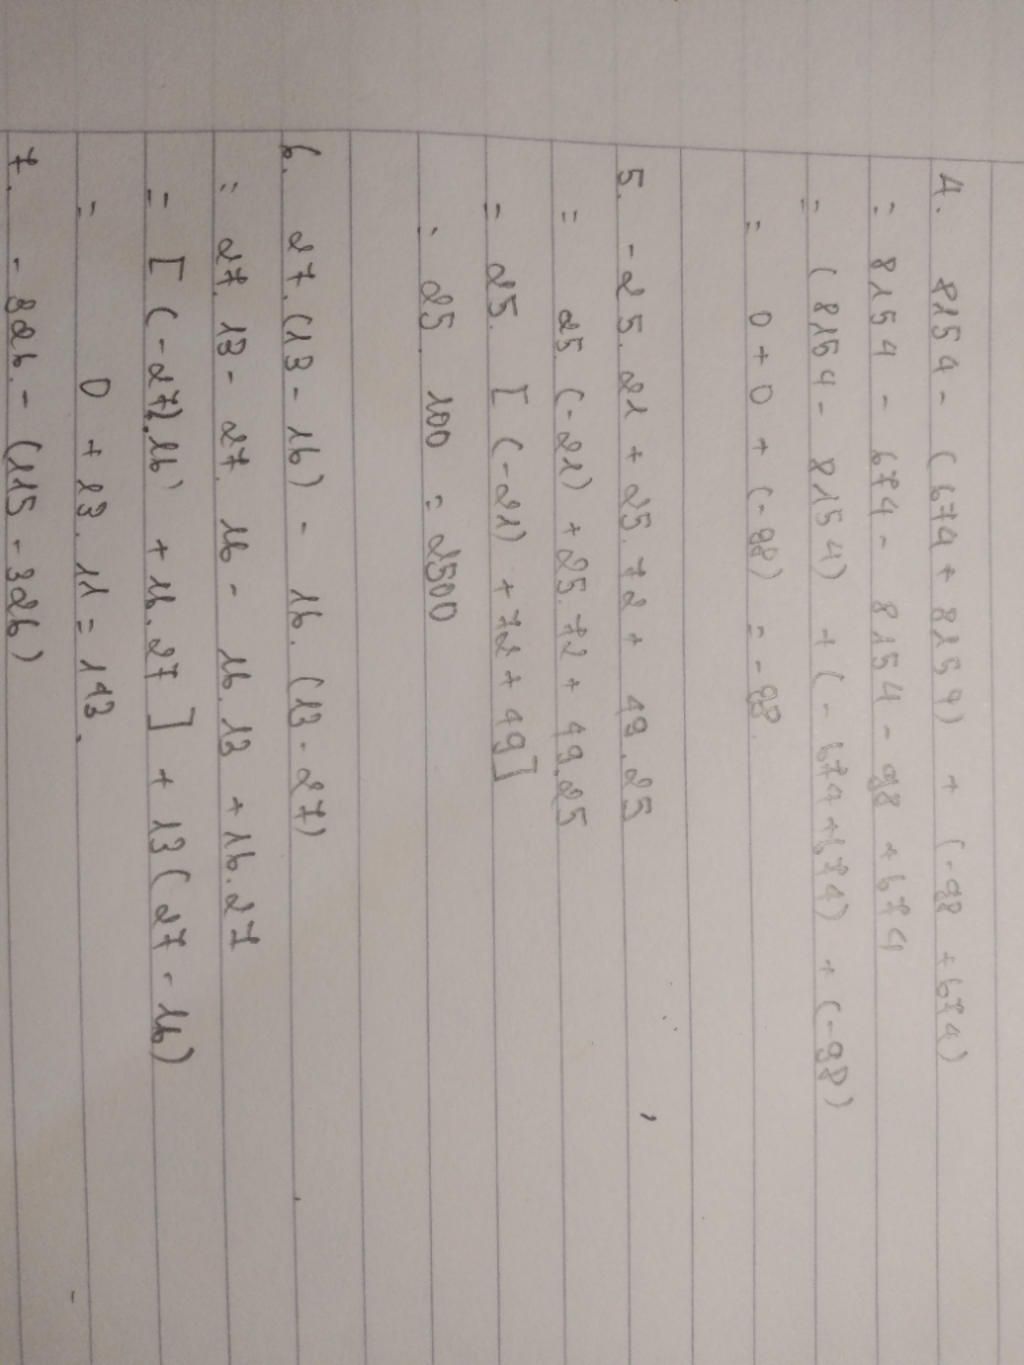 4. 8154 - (674 + 8154) + (-98 + 674)
= 8154 - 674 - 8154 - 98 + 674
= (8154 - 8154) + (-674 + 674) + (-98)
= 0 + 0 + (-98) = -98.
5. -25.21 + 25.72 + 49.25
= 25.(-21) + 25.72 + 49.25
= 25. [(-21) + 72 + 49]
= 25. 100 = 2500
6. 27.(13 - 16) - 16.(13 - 27)
= 27.13 - 27.16 - 16.13 + 16.27
= [(-27).16) + 16.27] + 13(27 - 16)
= 0 + 13.11 = 143.
7. - 326 - (115 - 326)